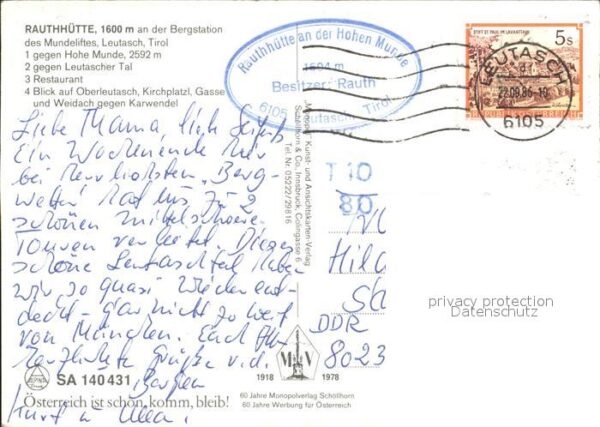 RAUTHHÜTTE, 1600 m an der Bergstation
des Mundeliftes, Leutasch, Tirol
1 gegen Hohe Munde, 2592 m
2 gegen Leutascher Tal
3 Restaurant
4 Blick auf Oberleutasch, Kirchplatzl, Gasse
und Weidach gegen Karwendel
Rauthhütte an der Hohen Munde
1604 m
Besitzer: Rauth
6105 Leutasch, Tirol
STIFT ST. PAUL IM LAVANTTAL
5s
REPUBLIK ÖSTERREICH
LEUTASCH
22.09.86-10
6105
Liebe Mama, lieb
Ein Wochenende hier
bei herrlichstem „Berg-
wetter" hat uns zu 2
schönen mittelschweren
Touren verleitet. Dieses
schöne Leutaschtal haben
wir so quasi wieder ent-
deckt - gar nicht so weit
von München. Euch
herzliche Grüße v. d.
Bergen
Kurt u.
Monopol Kunst- und Ansichtskarten-Verlag
Schöllhorn & Co., Innsbruck, Colingasse 6
Tel. Nr. 05222/29816
T 10
80
Hild
DDR
8023
privacy protection
Datenschutz
MV
1918 1978
60 Jahre Monopolverlag Schöllhorn
60 Jahre Werbung für Österreich
SA 140431
Österreich ist schön, komm, bleib!